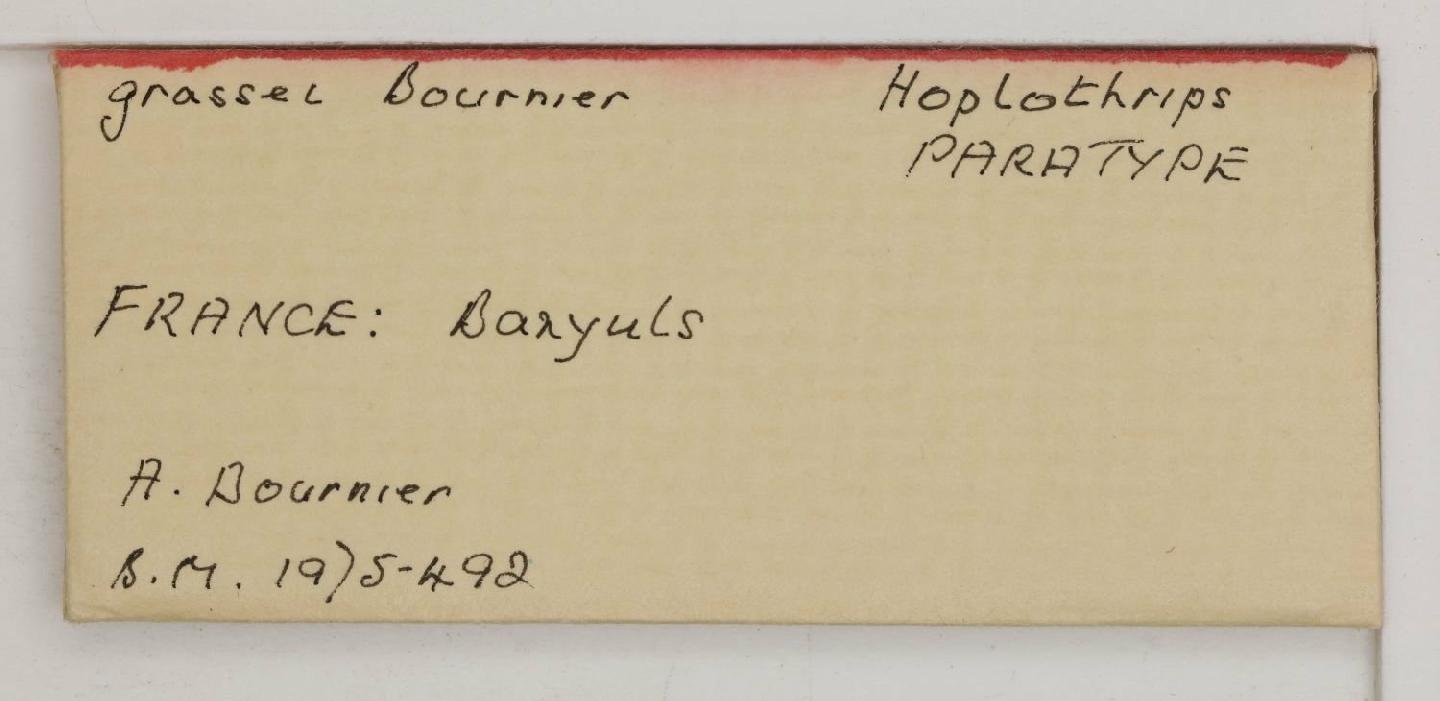 grassei Bournier Hoplothrips
PARATYPE
FRANCE: Banyuls
A. Bournier
B.M. 1975-492